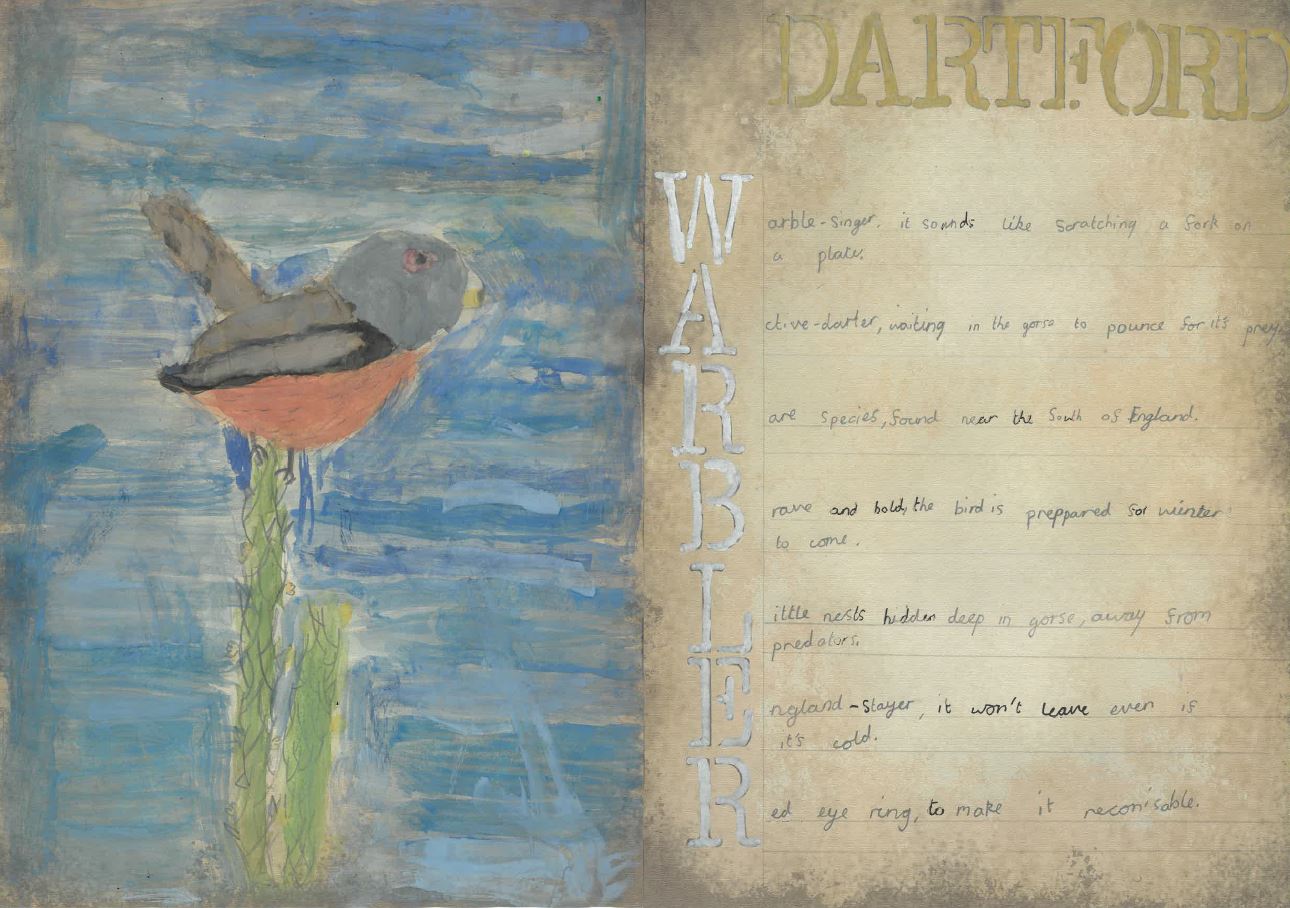 DARTFORD
Warble-singer, it sounds like scratching a fork on
a plate.
Active-darter, waiting in the gorse to pounce for it's prey.
Rare species, found near the South of England.
Brave and bold, the bird is preppared for winter
to come.
Little nests hidden deep in gorse, away from
predators.
England-stayer, it won't leave even if
it's cold.
Red eye ring, to make it reconisable.